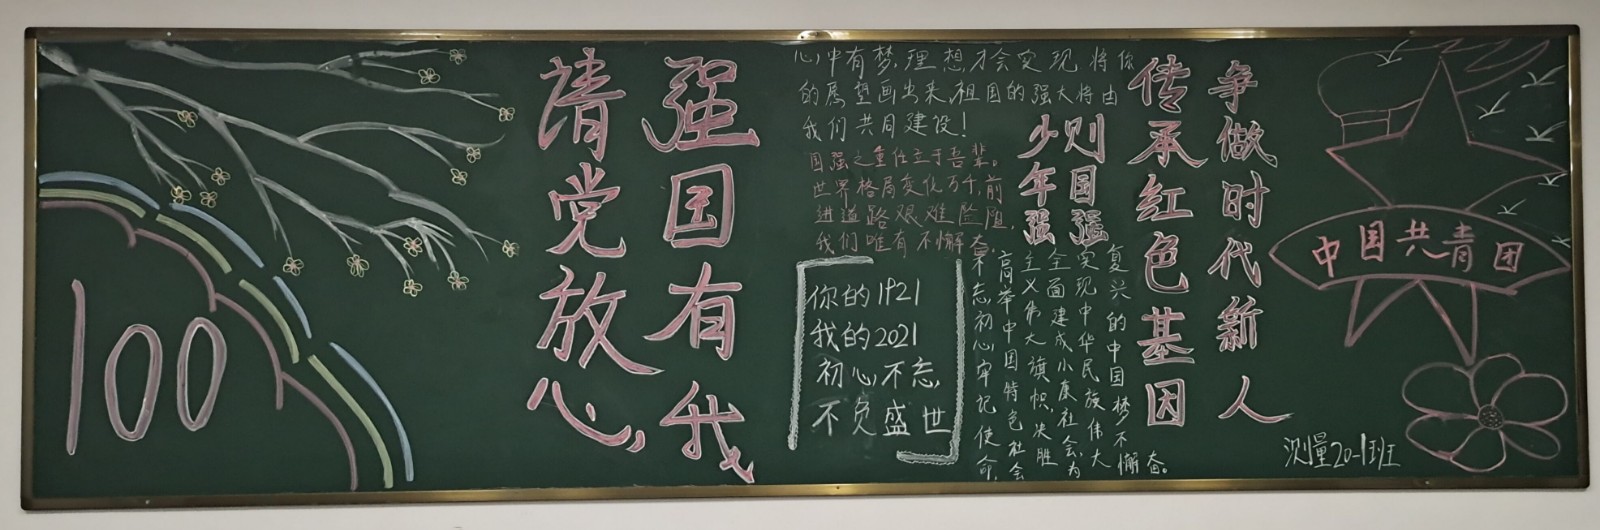 100
请党放心,
强国有我
心中有梦,理想才会实现,将你
的愿望画出来,祖国的强大将由
我们共同建设!
国强之重任立于吾辈。
世界格局变化万千,前
进道路艰难险阻,
我们唯有不懈奋
少年强
则国强
你的1921
我的2021
初心不忘,
不负盛世
不忘初心牢记使命,
高举中国特色社会
主义伟大旗帜,决胜
全面建成小康社会,为
实现中华民族伟大
复兴的中国梦不懈奋。
传承红色基因
争做时代新人
中国共青团
测量20-1班